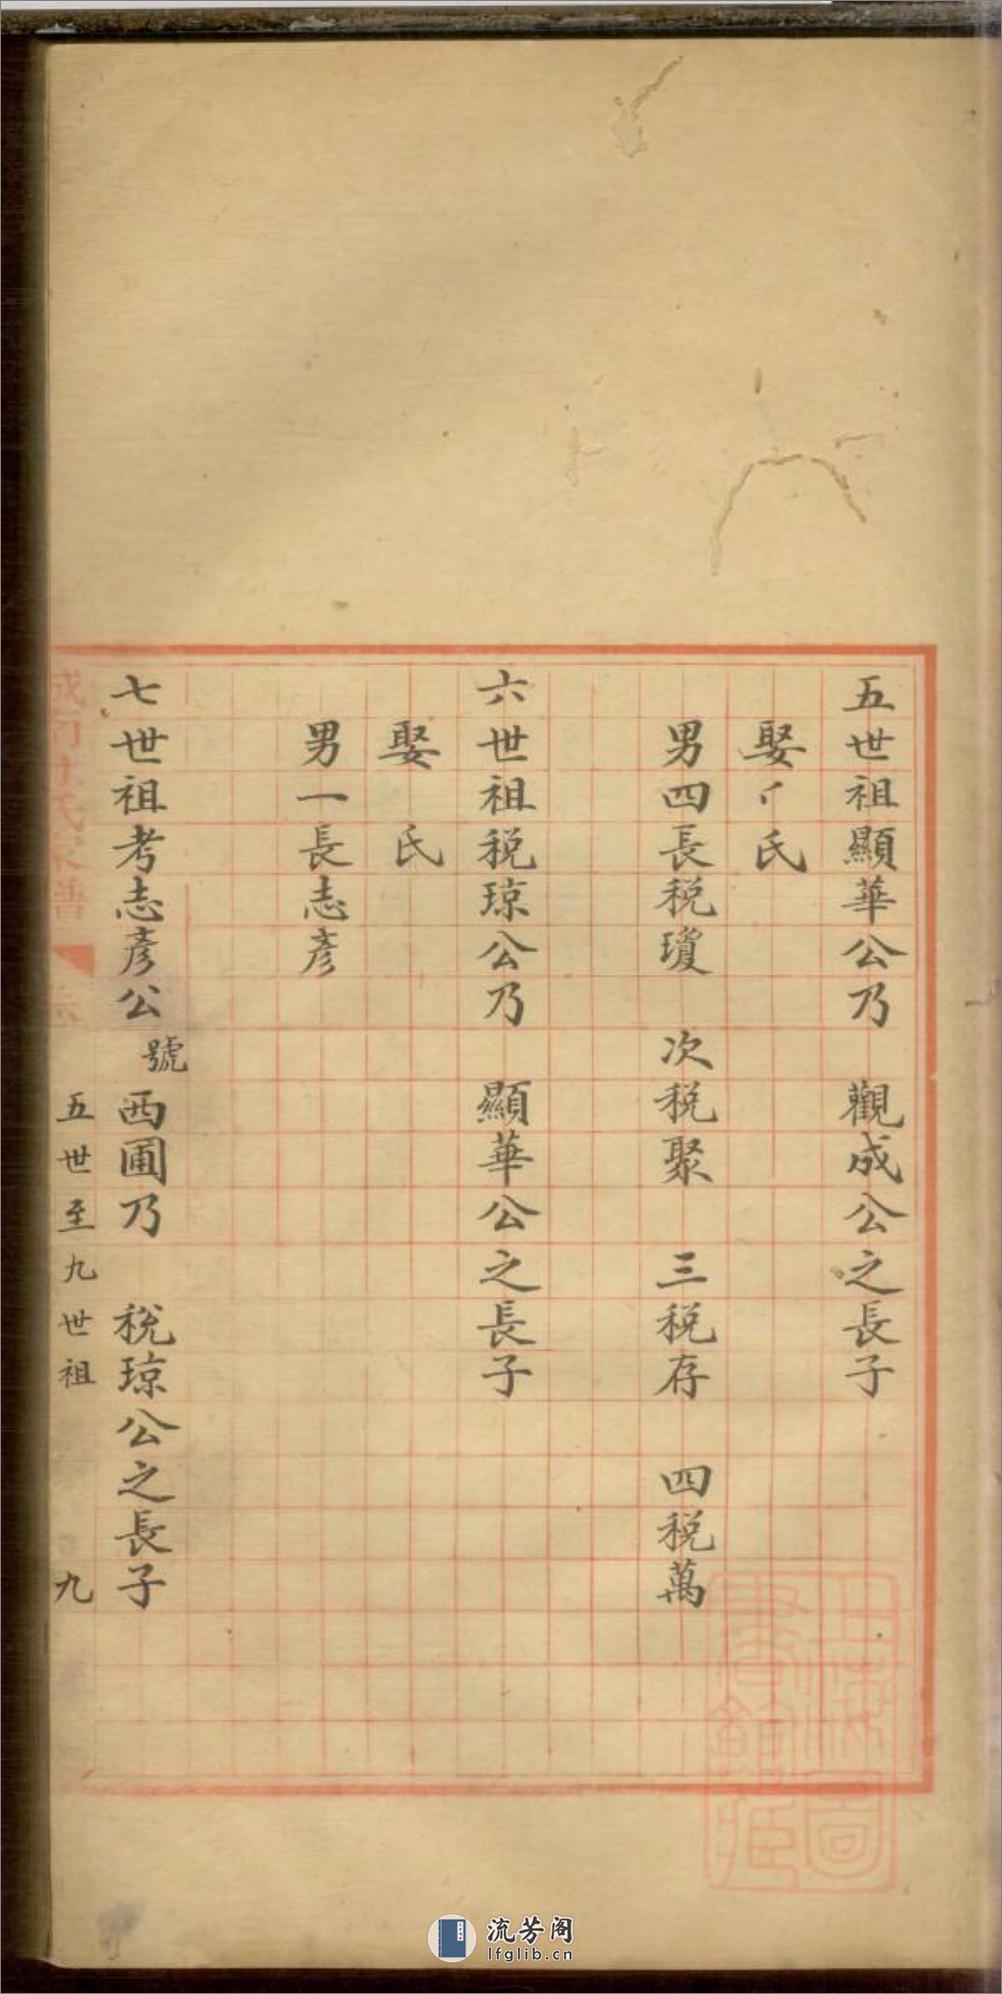 五世祖顯華公乃　觀成公之長子
娶　氏
男四長税瓊　次税聚　三税存　四税萬
六世祖税琼公乃　顯華公之長子
娶　氏
男一長志彦
七世祖考志彦公號西圃乃　税琼公之長子
五世至九世祖　九
上海圖書館藏
流芳阁
lfglib.cn